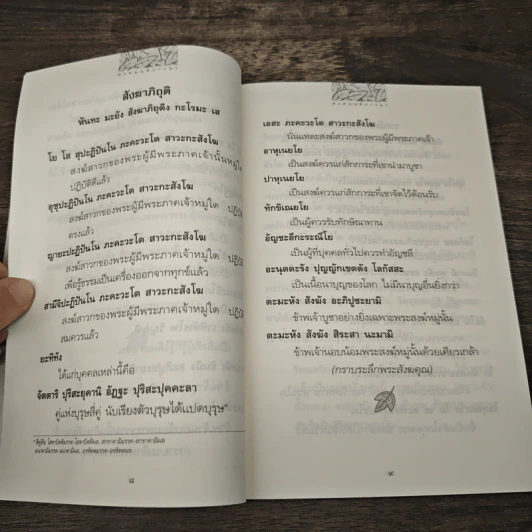 สังฆาภิถุติ
หันทะ มะยัง สังฆาภิถุติง กะโรมะ เส
โย โส สุปะฏิปันโน ภะคะวะโต สาวะกะสังโฆ
สงฆ์สาวกของพระผู้มีพระภาคเจ้านั้นหมู่ใด
ปฏิบัติดีแล้ว
อุชุปะฏิปันโน ภะคะวะโต สาวะกะสังโฆ
สงฆ์สาวกของพระผู้มีพระภาคเจ้าหมู่ใด ปฏิบัติ
ตรงแล้ว
ญายะปะฏิปันโน ภะคะวะโต สาวะกะสังโฆ
สงฆ์สาวกของพระผู้มีพระภาคเจ้าหมู่ใด ปฏิบัติ
เพื่อรู้ธรรมเป็นเครื่องออกจากทุกข์แล้ว
สามีจิปะฏิปันโน ภะคะวะโต สาวะกะสังโฆ
สงฆ์สาวกของพระผู้มีพระภาคเจ้าหมู่ใด ปฏิบัติ
สมควรแล้ว
ยะทิทัง
ได้แก่บุคคลเหล่านี้คือ
จัตตาริ ปุริสะยุคานิ อัฏฐะ ปุริสะปุคคะลา
คู่แห่งบุรุษสี่คู่ นับเรียงตัวบุรุษได้แปดบุรุษ*
* สี่คู่คือ โสดาปัตติมรรค-โสดาปัตติผล, สกทาคามิมรรค-สกทาคามิผล
อนาคามิมรรค-อนาคามิผล, อรหัตตมรรค-อรหัตตผล
๘
เอสะ ภะคะวะโต สาวะกะสังโฆ
นั่นแหละสงฆ์สาวกของพระผู้มีพระภาคเจ้า
อาหุเนยโย
เป็นสงฆ์ควรแก่สักการะที่เขานำมาบูชา
ปาหุเนยโย
เป็นสงฆ์ควรแก่สักการะที่เขาจัดไว้ต้อนรับ
ทักขิเณยโย
เป็นผู้ควรรับทักษิณาทาน
อัญชะลีกะระณีโย
เป็นผู้ที่บุคคลทั่วไปควรทำอัญชลี
อะนุตตะรัง ปุญญักเขตตัง โลกัสสะ
เป็นเนื้อนาบุญของโลก ไม่มีนาบุญอื่นยิ่งกว่า
ตะมะหัง สังฆัง อะภิปูชะยามิ
ข้าพเจ้าบูชาอย่างยิ่งเฉพาะพระสงฆ์หมู่นั้น
ตะมะหัง สังฆัง สิระสา นะมามิ
ข้าพเจ้านอบน้อมพระสงฆ์หมู่นั้นด้วยเศียรเกล้า
(กราบระลึกพระสังฆคุณ)
๙